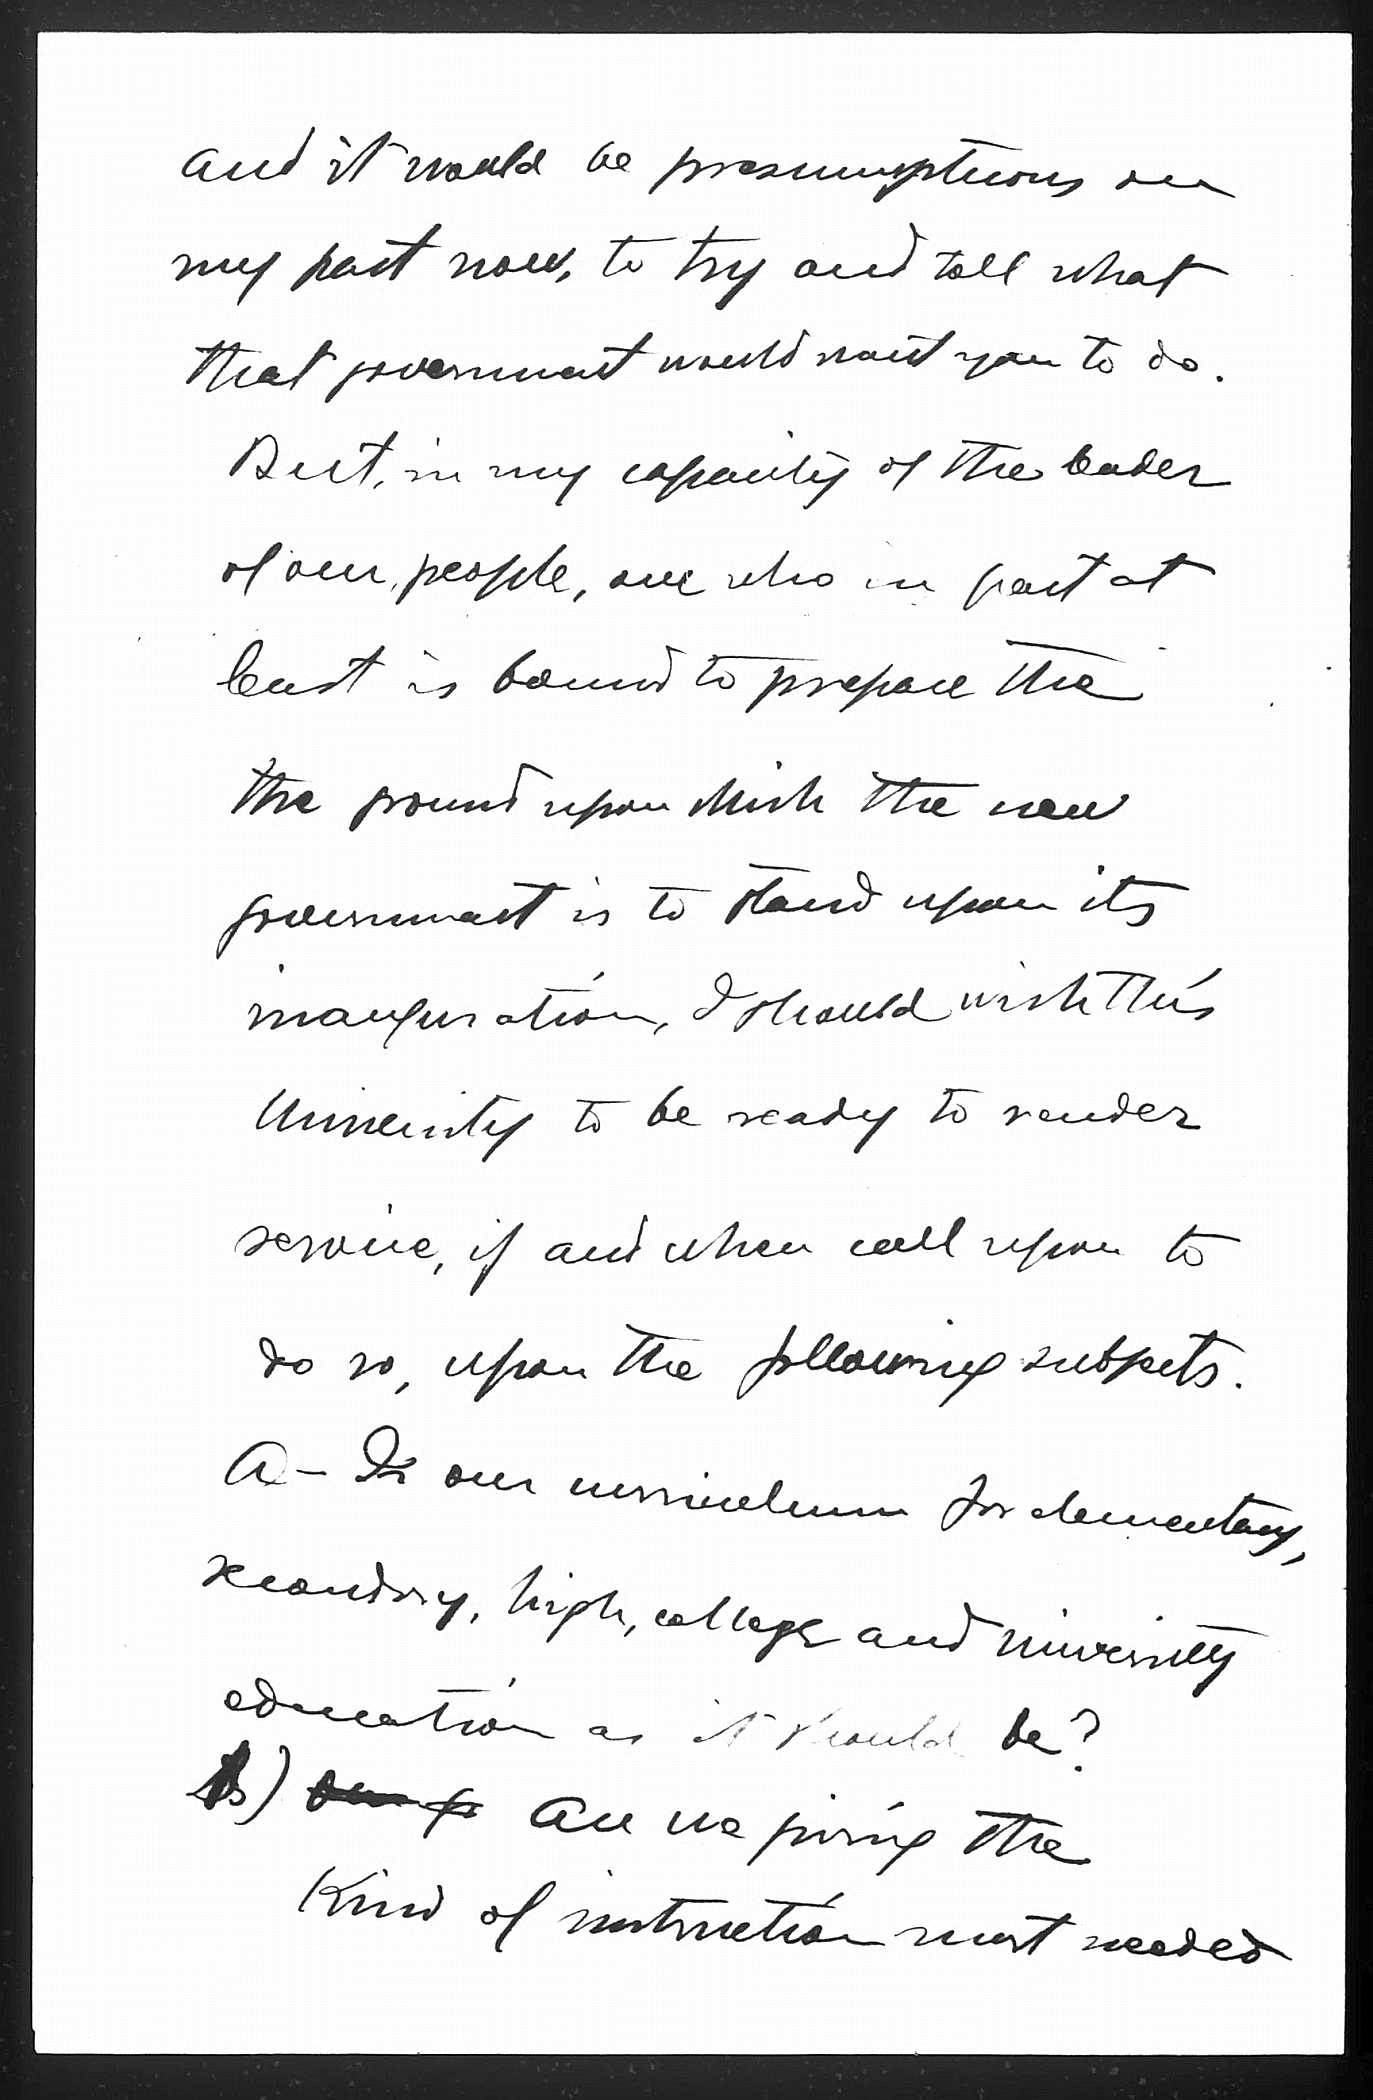 and it would be presumptuous on
my part now, to try and tell what
that government would want you to do.
But, in my capacity of the leader
of our people, one who in part at
least is bound to prepare the
the ground upon which the new
government is to stand upon its
inauguration, I should wish this
University to be ready to render
service, if and when call upon to
do so, upon the following subjects.
A- Is our curriculum for elementary,
secondary, high, college and university
education as it should be?
B) Are we giving the
kind of instruction most needed